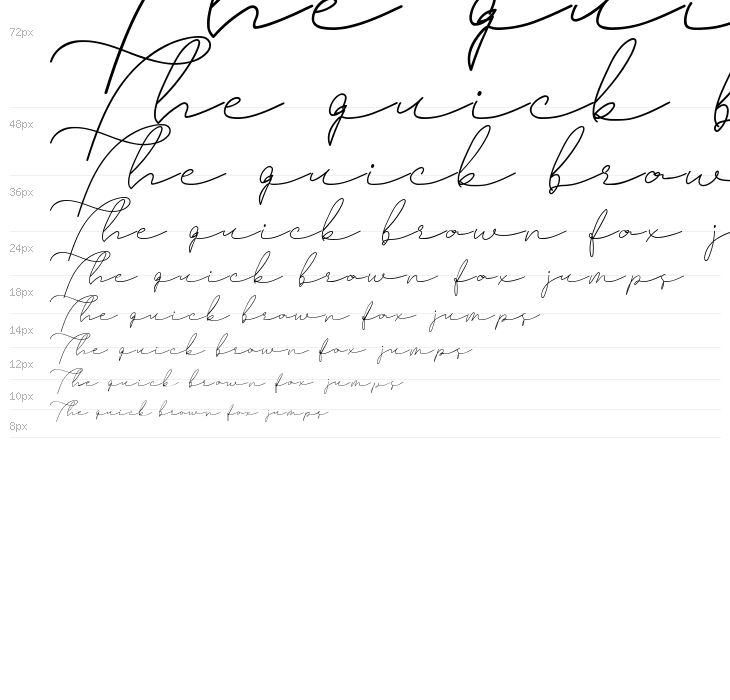 The qui
72px
The quick b
48px
The quick brow
36px
The quick brown fox j
24px
The quick brown fox jumps
18px
The quick brown fox jumps
14px
The quick brown fox jumps
12px
The quick brown fox jumps
10px
The quick brown fox jumps
8px